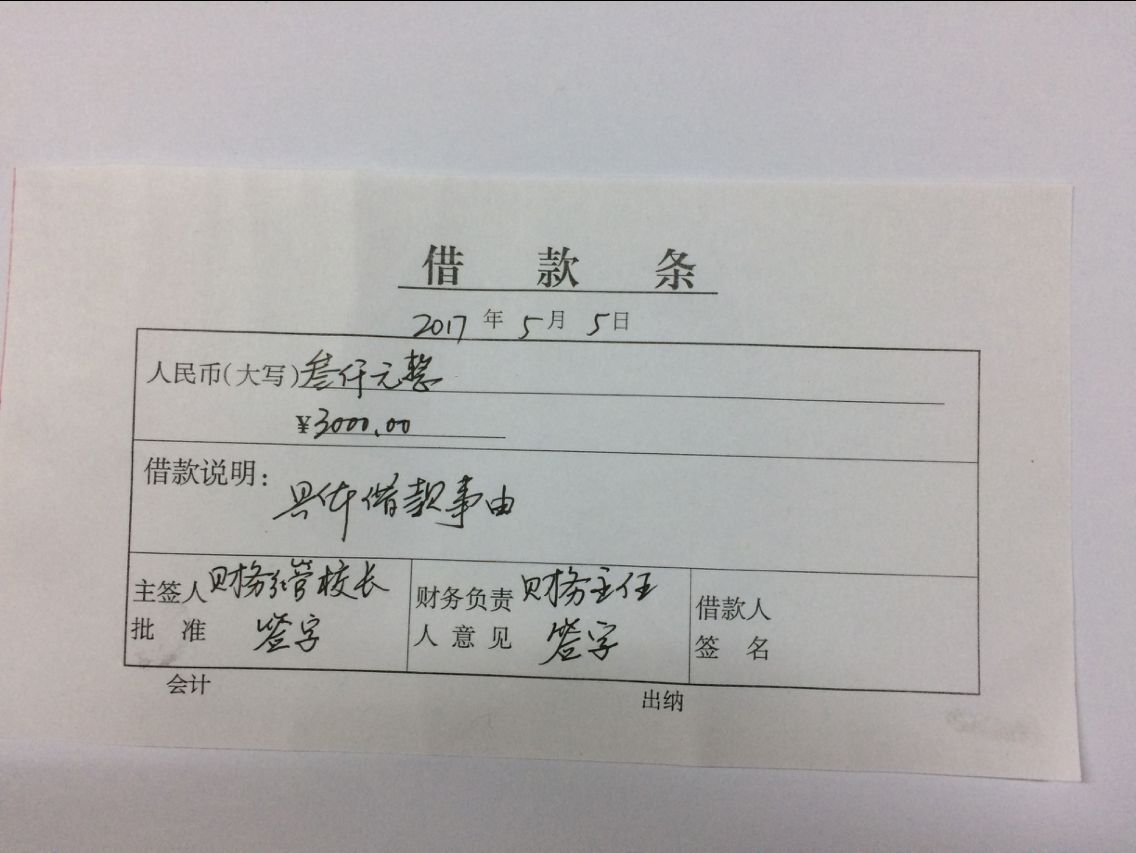 借款条
2017年5月5日
人民币(大写)叁仟元整
¥3000.00
借款说明:
具体借款事由
主签人 财务分管校长
批准 签字
财务负责 财务主任
人意见 签字
借款人
签名
会计 出纳